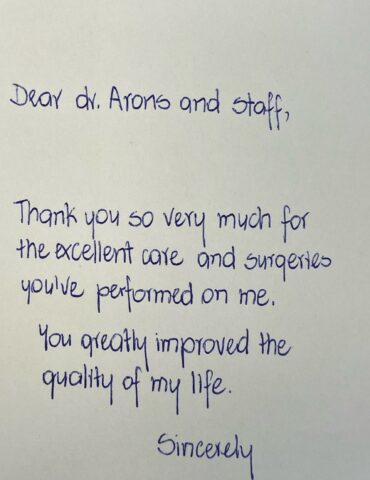 Dear dr. Arons and staff,
Thank you so very much for
the excellent care and surgeries
you've performed on me.
You greatly improved the
quality of my life.
Sincerely